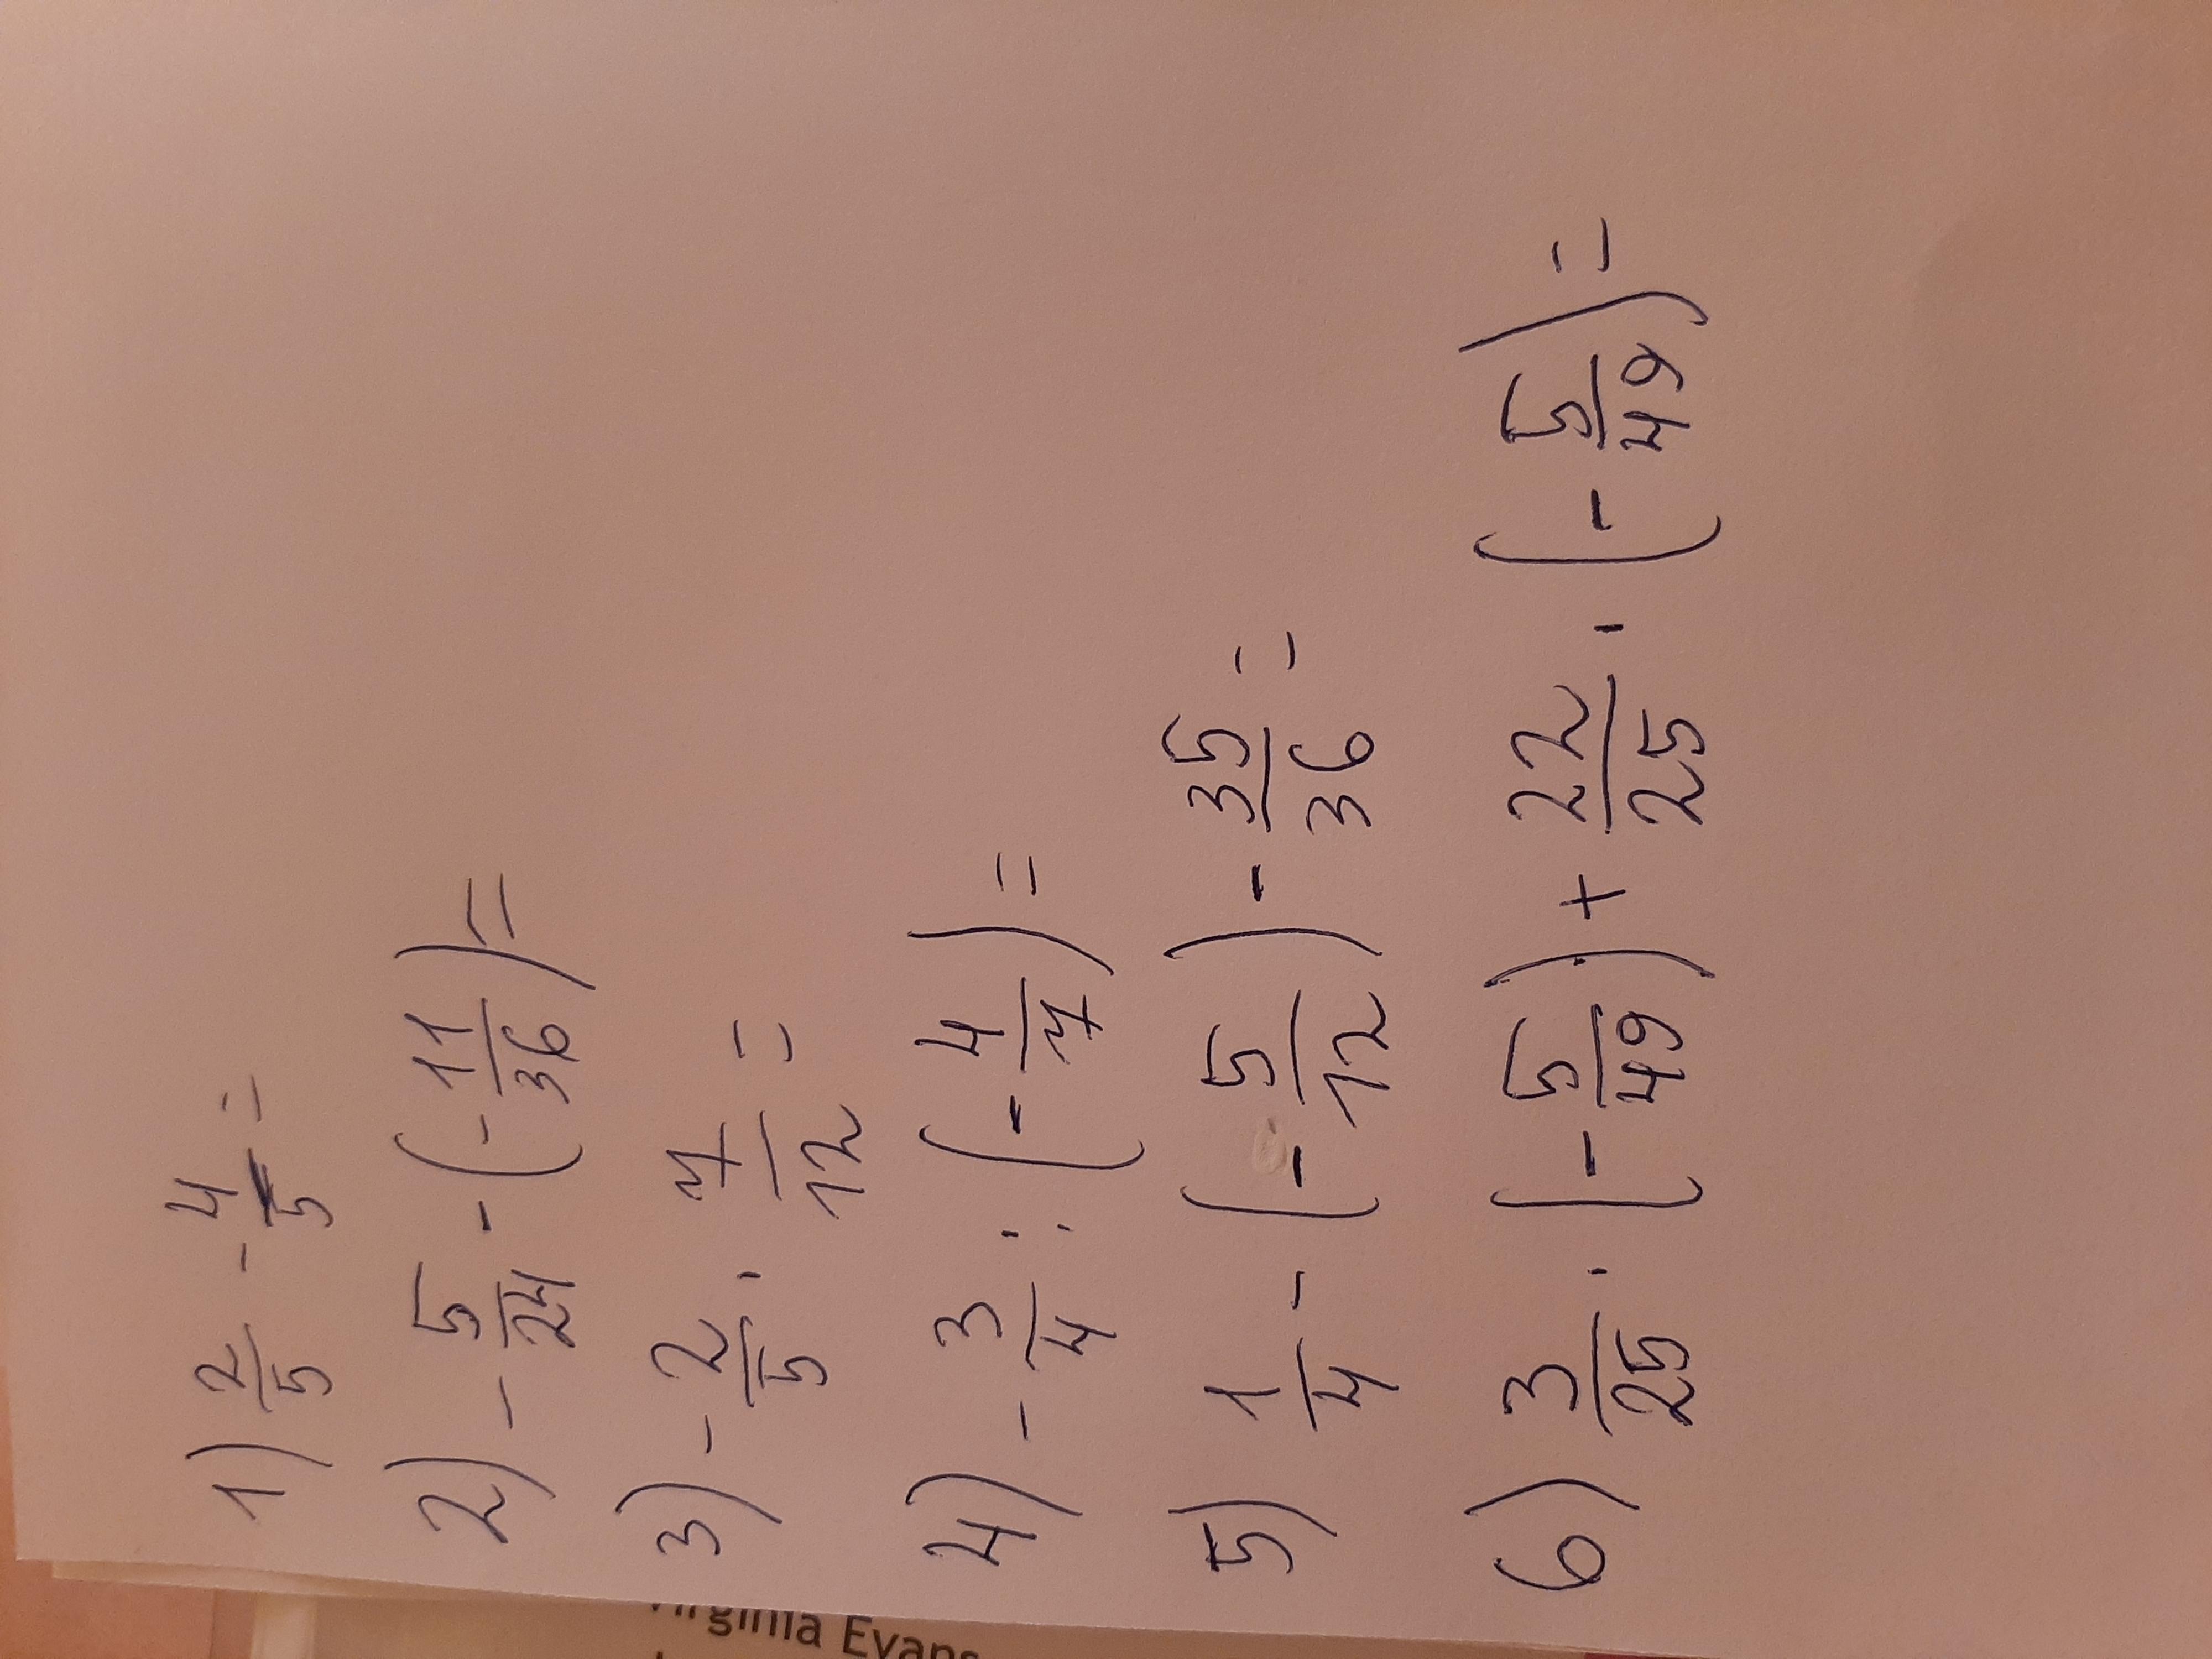 1) 2/5 - 4/5 =
2) - 5/24 - (- 11/36) =
3) - 2/5 · 7/12 =
4) - 3/4 : (- 4/7) =
5) 1/4 - (- 5/12) - 35/36 =
6) 3/25 · (- 5/49) + 22/25 · (- 5/49) =
Virginia Evans